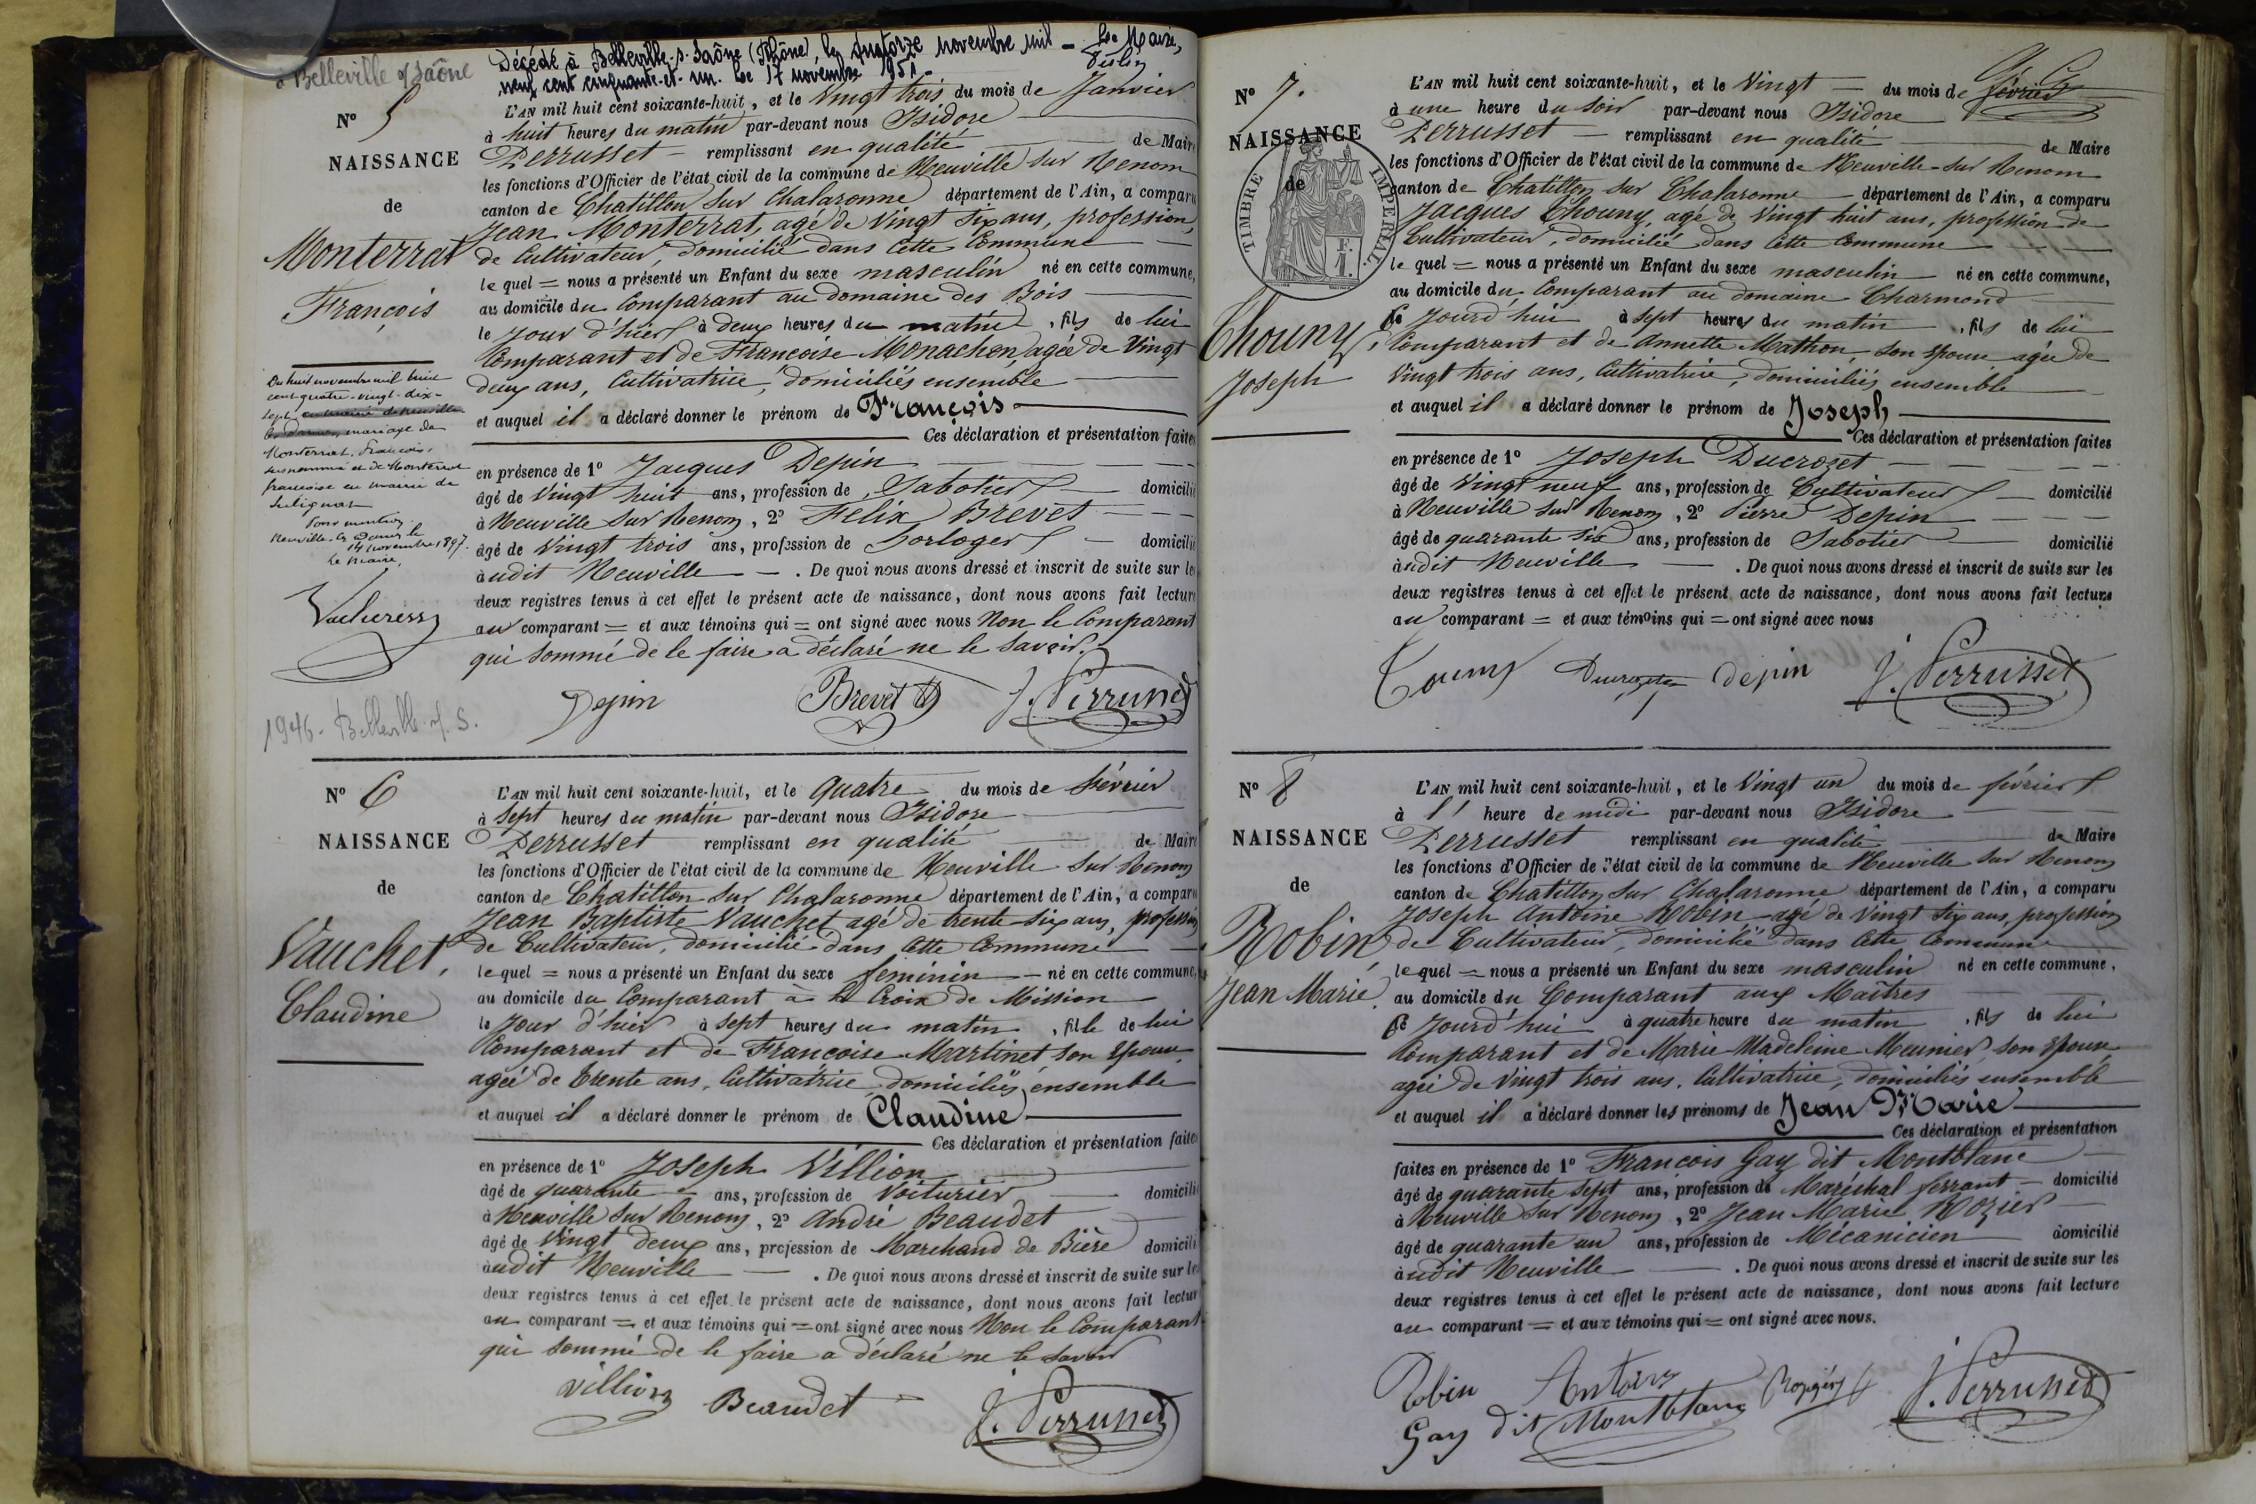 à Belleville s/Saône
Décédé à Belleville-s-Saône (Rhône), le quatorze novembre mil — Le Maire,
neuf cent cinquante-et-un. Le 17 novembre 1951.-
N° 5
NAISSANCE
de
Monterrat
François
Du huit novembre mil huit
cent quatre-vingt-dix-
sept, en mairie de neuville
les Dames, mariage de
Monterrat, François,
susnommé et de Monterrat
françoise en mairie de
Sulignat
Pour mention
Neuville-les-Dames le
14 novembre 1897.
Le Maire,
1946- Belleville s/. S.
L'AN mil huit cent soixante-huit, et le Vingt trois du mois de Janvier
à huit heures du matin par-devant nous Isidore
Perrusset — remplissant en qualité de Maire
les fonctions d'Officier de l'état civil de la commune de Neuville sur Renom
canton de Chatillon sur Chalaronne département de l'Ain, a comparu
Jean Monterrat, agé de Vingt Six ans, profession,
de Cultivateur, domicilié dans cette Commune
le quel = nous a présenté un Enfant du sexe masculin né en cette commune,
au domicile du Comparant au domaine des Bois
le Jour d'hier à deux heures du matin, fils de lui
Comparant et de Françoise Monachon, agée de Vingt
deux ans, Cultivatrice, domiciliés ensemble
et auquel il a déclaré donner le prénom de François
Ces déclaration et présentation faites
en présence de 1° Jacques Depin
âgé de Vingt huit ans, profession de Sabotier — domicilié
à Neuville Sur Renom, 2° Félix Brevet
âgé de Vingt trois ans, profession de horloger — domicilié
àudit Neuville — . De quoi nous avons dressé et inscrit de suite sur les
deux registres tenus à cet effet le présent acte de naissance, dont nous avons fait lecture
au comparant = et aux témoins qui = ont signé avec nous Non le Comparant
qui sommé de le faire a déclaré ne le savoir.
Depin Brevet J. Perrusset
N° 6
NAISSANCE
de
Vauchet,
Claudine
L'AN mil huit cent soixante-huit, et le quatre du mois de février
à Sept heures du matin par-devant nous Isidore
Perrusset remplissant en qualité de Maire
les fonctions d'Officier de l'état civil de la commune de Neuville sur Renom
canton de Chatillon sur Chalaronne département de l'Ain, a comparu
Jean Baptiste Vauchet agé de trente-six ans, profession
de Cultivateur, domicilié dans cette Commune
le quel = nous a présenté un Enfant du sexe feminin — né en cette commune,
au domicile du Comparant à la Croix de Mission
le Jour d'hier à sept heures du matin, fille de lui
Comparant et de Françoise Martinet son Epouse,
agée de trente ans, Cultivatrice, domiciliés ensemble
et auquel il a déclaré donner le prénom de Claudine
Ces déclaration et présentation faites
en présence de 1° Joseph Villion
âgé de quarante ans, profession de Voiturier — domicilié
à Neuville Sur Renom, 2° André Beaudet
âgé de Vingt deux ans, profession de Marchand de Bière domicilié
àudit Neuville — . De quoi nous avons dressé et inscrit de suite sur les
deux registres tenus à cet effet le présent acte de naissance, dont nous avons fait lecture
au comparant = et aux témoins qui = ont signé avec nous Non le Comparant
qui sommé de le faire a déclaré ne le savoir
Villion Beaudet J. Perrusset
N° 7.
NAISSANCE
de
TIMBRE IMPERIAL
Chouny,
Joseph
L'AN mil huit cent soixante-huit, et le Vingt — du mois de février
à une heure du Soir par-devant nous Isidore
Perrusset — remplissant en qualité de Maire
les fonctions d'Officier de l'état civil de la commune de Neuville-sur Renom
canton de Chatillon sur Chalaronne — département de l'Ain, a comparu
Jacques Chouny, agé de Vingt huit ans, profession de
Cultivateur, domicilié dans cette Commune
le quel = nous a présenté un Enfant du sexe masculin — né en cette commune,
au domicile du Comparant au domaine Charmond
Ce Jourd'hui à sept heures du matin, fils de lui
Comparant et de Annette Mathon, son épouse agée de
Vingt trois ans, Cultivatrice, domiciliés ensemble
et auquel il a déclaré donner le prénom de Joseph
Ces déclaration et présentation faites
en présence de 1° Joseph Ducrozet
âgé de Vingt neuf ans, profession de Cultivateur — domicilié
à Neuville Sur Renom, 2° Pierre Depin
âgé de quarante six ans, profession de Sabotier domicilié
àudit Neuville — . De quoi nous avons dressé et inscrit de suite sur les
deux registres tenus à cet effet le présent acte de naissance, dont nous avons fait lecture
au comparant = et aux témoins qui = ont signé avec nous
depin J. Perrusset
N° 8
NAISSANCE
de
Robin,
Jean Marie
L'AN mil huit cent soixante-huit, et le Vingt un du mois de février
à l' heure de midi par-devant nous Isidore
Perrusset remplissant en qualité de Maire
les fonctions d'Officier de l'état civil de la commune de Neuville sur Renom
canton de Chatillon sur Chalaronne département de l'Ain, a comparu
Joseph Antoine Robin, agé de Vingt Six ans, profession
de Cultivateur, domicilié dans cette Commune
le quel = nous a présenté un Enfant du sexe masculin né en cette commune,
au domicile du Comparant aux Maîtres
Ce Jourd'hui à quatre heure du matin, fils de lui
Comparant et de Marie Madeleine Meunier, son épouse,
agée de Vingt trois ans, Cultivatrice, domiciliés ensemble
et auquel il a déclaré donner les prénoms de Jean Marie
Ces déclaration et présentation
faites en présence de 1° François Gay dit Montblanc
âgé de quarante sept ans, profession de Maréchal ferrant — domicilié
à Neuville Sur Renom, 2° Jean Marie Rozier
âgé de quarante un ans, profession de Mécanicien domicilié
àudit Neuville — . De quoi nous avons dressé et inscrit de suite sur les
deux registres tenus à cet effet le présent acte de naissance, dont nous avons fait lecture
au comparant = et aux témoins qui = ont signé avec nous.
Robin Antoine J. Perrusset
Gay dit Montblanc